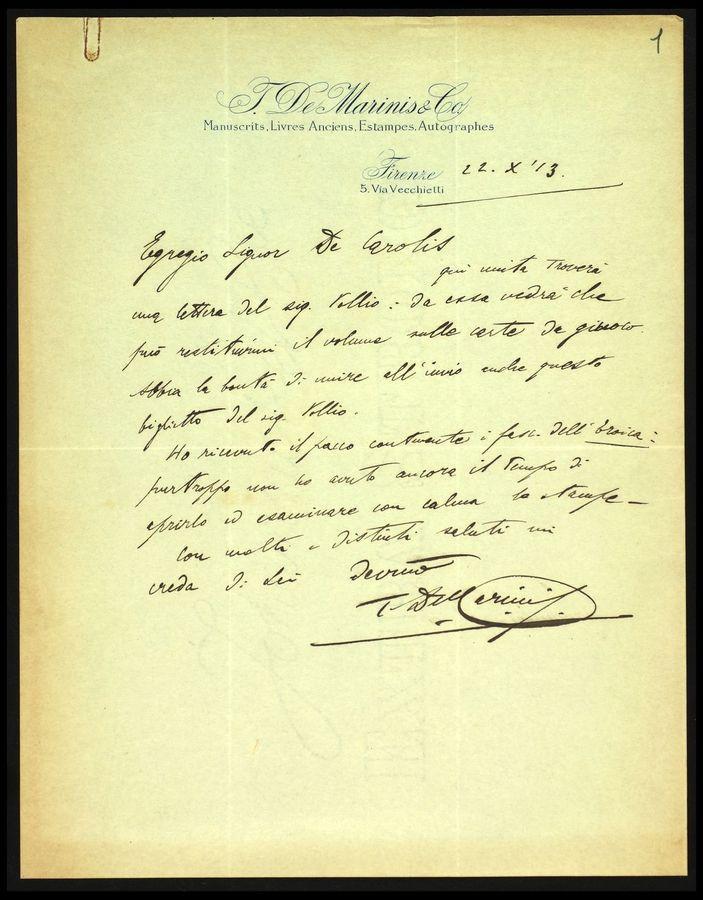 1
T. De Marinis & Co
Manuscrits, Livres Anciens, Estampes, Autographes
Firenze 22. X '13.
5. Via Vecchietti
Egregio Signor De Carolis
qui unita troverà
una lettera del sig. Vollio: da essa vedrà che
può restituirmi il volume sulle carte da giuoco.
Abbia la bontà di unire all'invio anche questo
biglietto del sig. Vollio.
Ho ricevuto il pacco contenente i fasc. dell'Eroica:
purtroppo non ho avuto ancora il tempo di
aprirlo ed esaminare con calma le stampe –
Con molti e distinti saluti mi
creda di Lei devmo
T. De Marinis